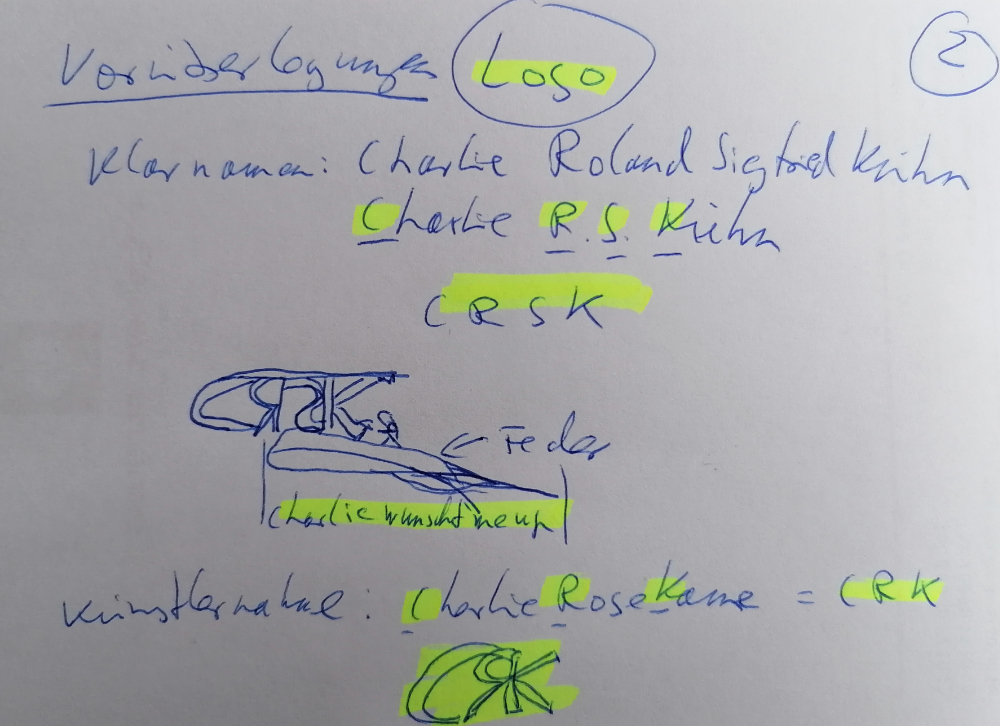 Vorüberlegungen Logo 2
Klarnamen: Charlie Roland Siegfried Kühn
Charlie R. S. Kühn
CRSK
CRSK
← Feder
Charlie
Künstlername: Charlie Rose Kame = CRK
CRK